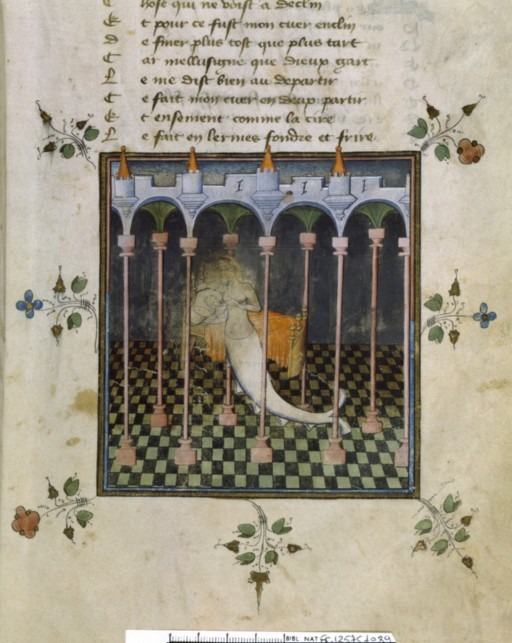 hose qui ne voist a declin
E t pour ce fust mon cuer enclin
d e finer plus tost que plus tart
C ar mellusigne que dieux gart
L e me dist bien au departir
C e fait mon cuer en deux partir
E t ensement comme la cire
L e fait en lermes fondre et frire
BIBL NAT